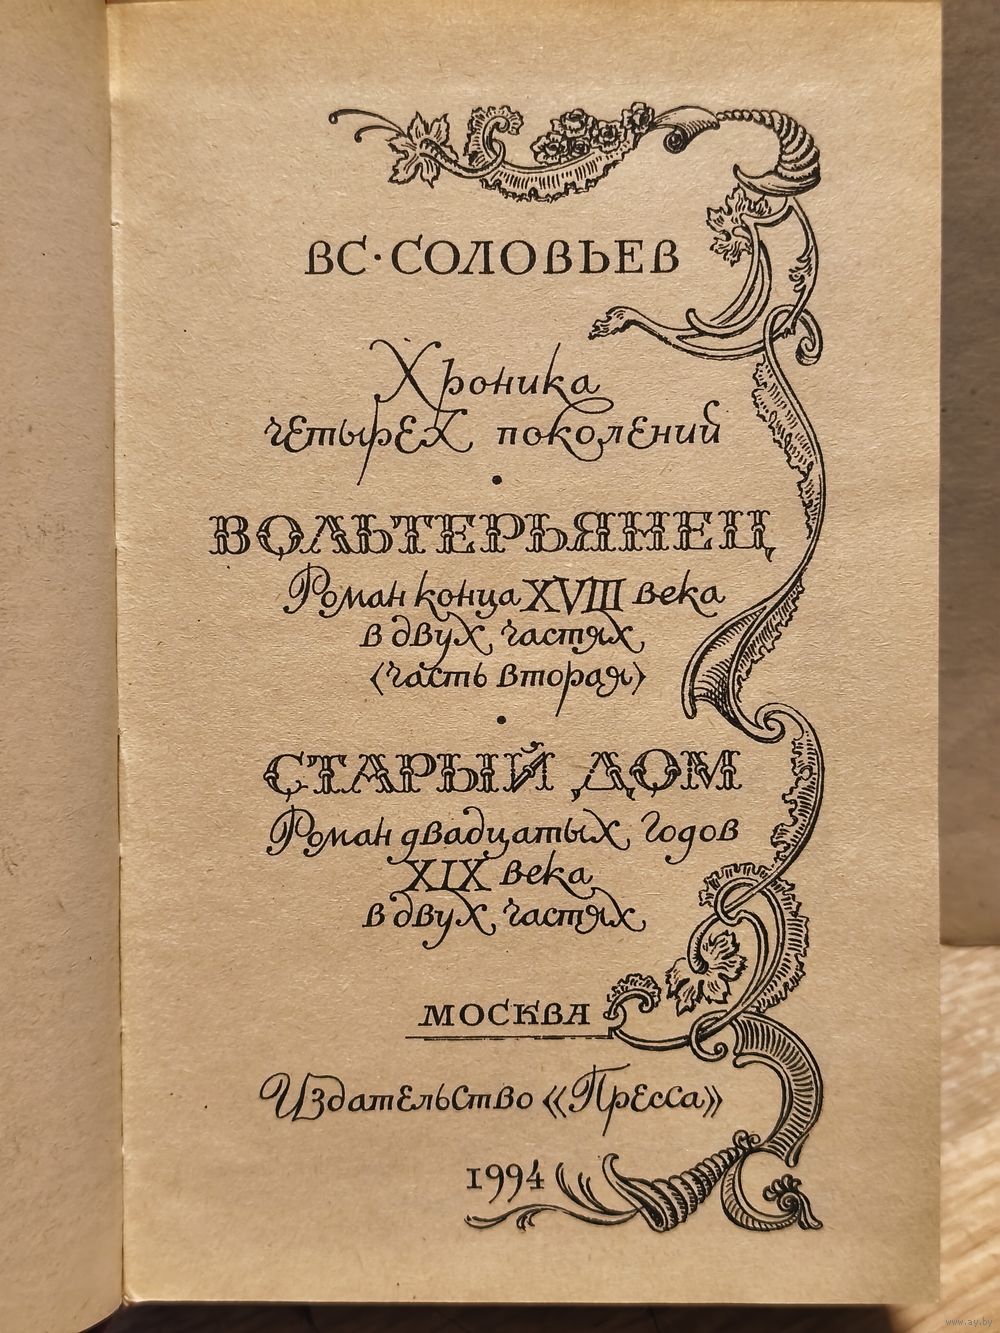 ВС·СОЛОВЬЕВ
Хроника
четырех поколений
•
ВОЛЬТЕРЬЯНЕЦ
Роман конца XVIII века
в двух частях
(часть вторая)
•
СТАРЫЙ ДОМ
Роман двадцатых годов
XIX века
в двух частях
МОСКВА
Издательство «Пресса»
1994
www.ay.by